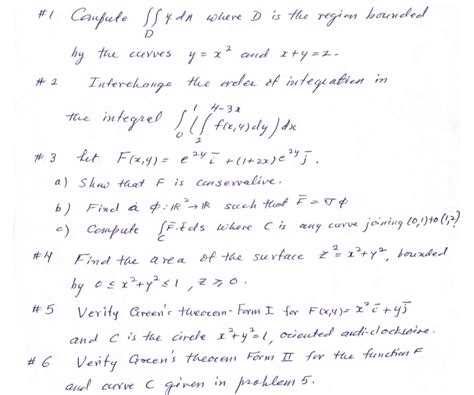 #1 Compute ∬_D y dA where D is the region bounded
by the curves y = x² and x+y = 2.
#2 Interchange the order of integration in
the integral ∫_0^1 (∫_2^{4-3x} f(x,y)dy) dx
#3 Let F(x,y) = e^{2y} i̅ + (1+2x)e^{2y} j̅.
a) Show that F is conservative.
b) Find a Φ: ℝ² → ℝ such that F̅ = ∇Φ
c) Compute ∫_C F̅·T̅ ds where C is any curve joining (0,1) to (1,2)?
#4 Find the area of the surface z² = x²+y², bounded
by 0 ≤ x²+y² ≤ 1, z ≥ 0.
#5 Verify Green's theorem - Form I for F(x,y) = x² i̅ + y j̅
and C is the circle x²+y²=1, oriented anti-clockwise.
#6 Verify Green's theorem Form II for the function F
and curve C given in problem 5.